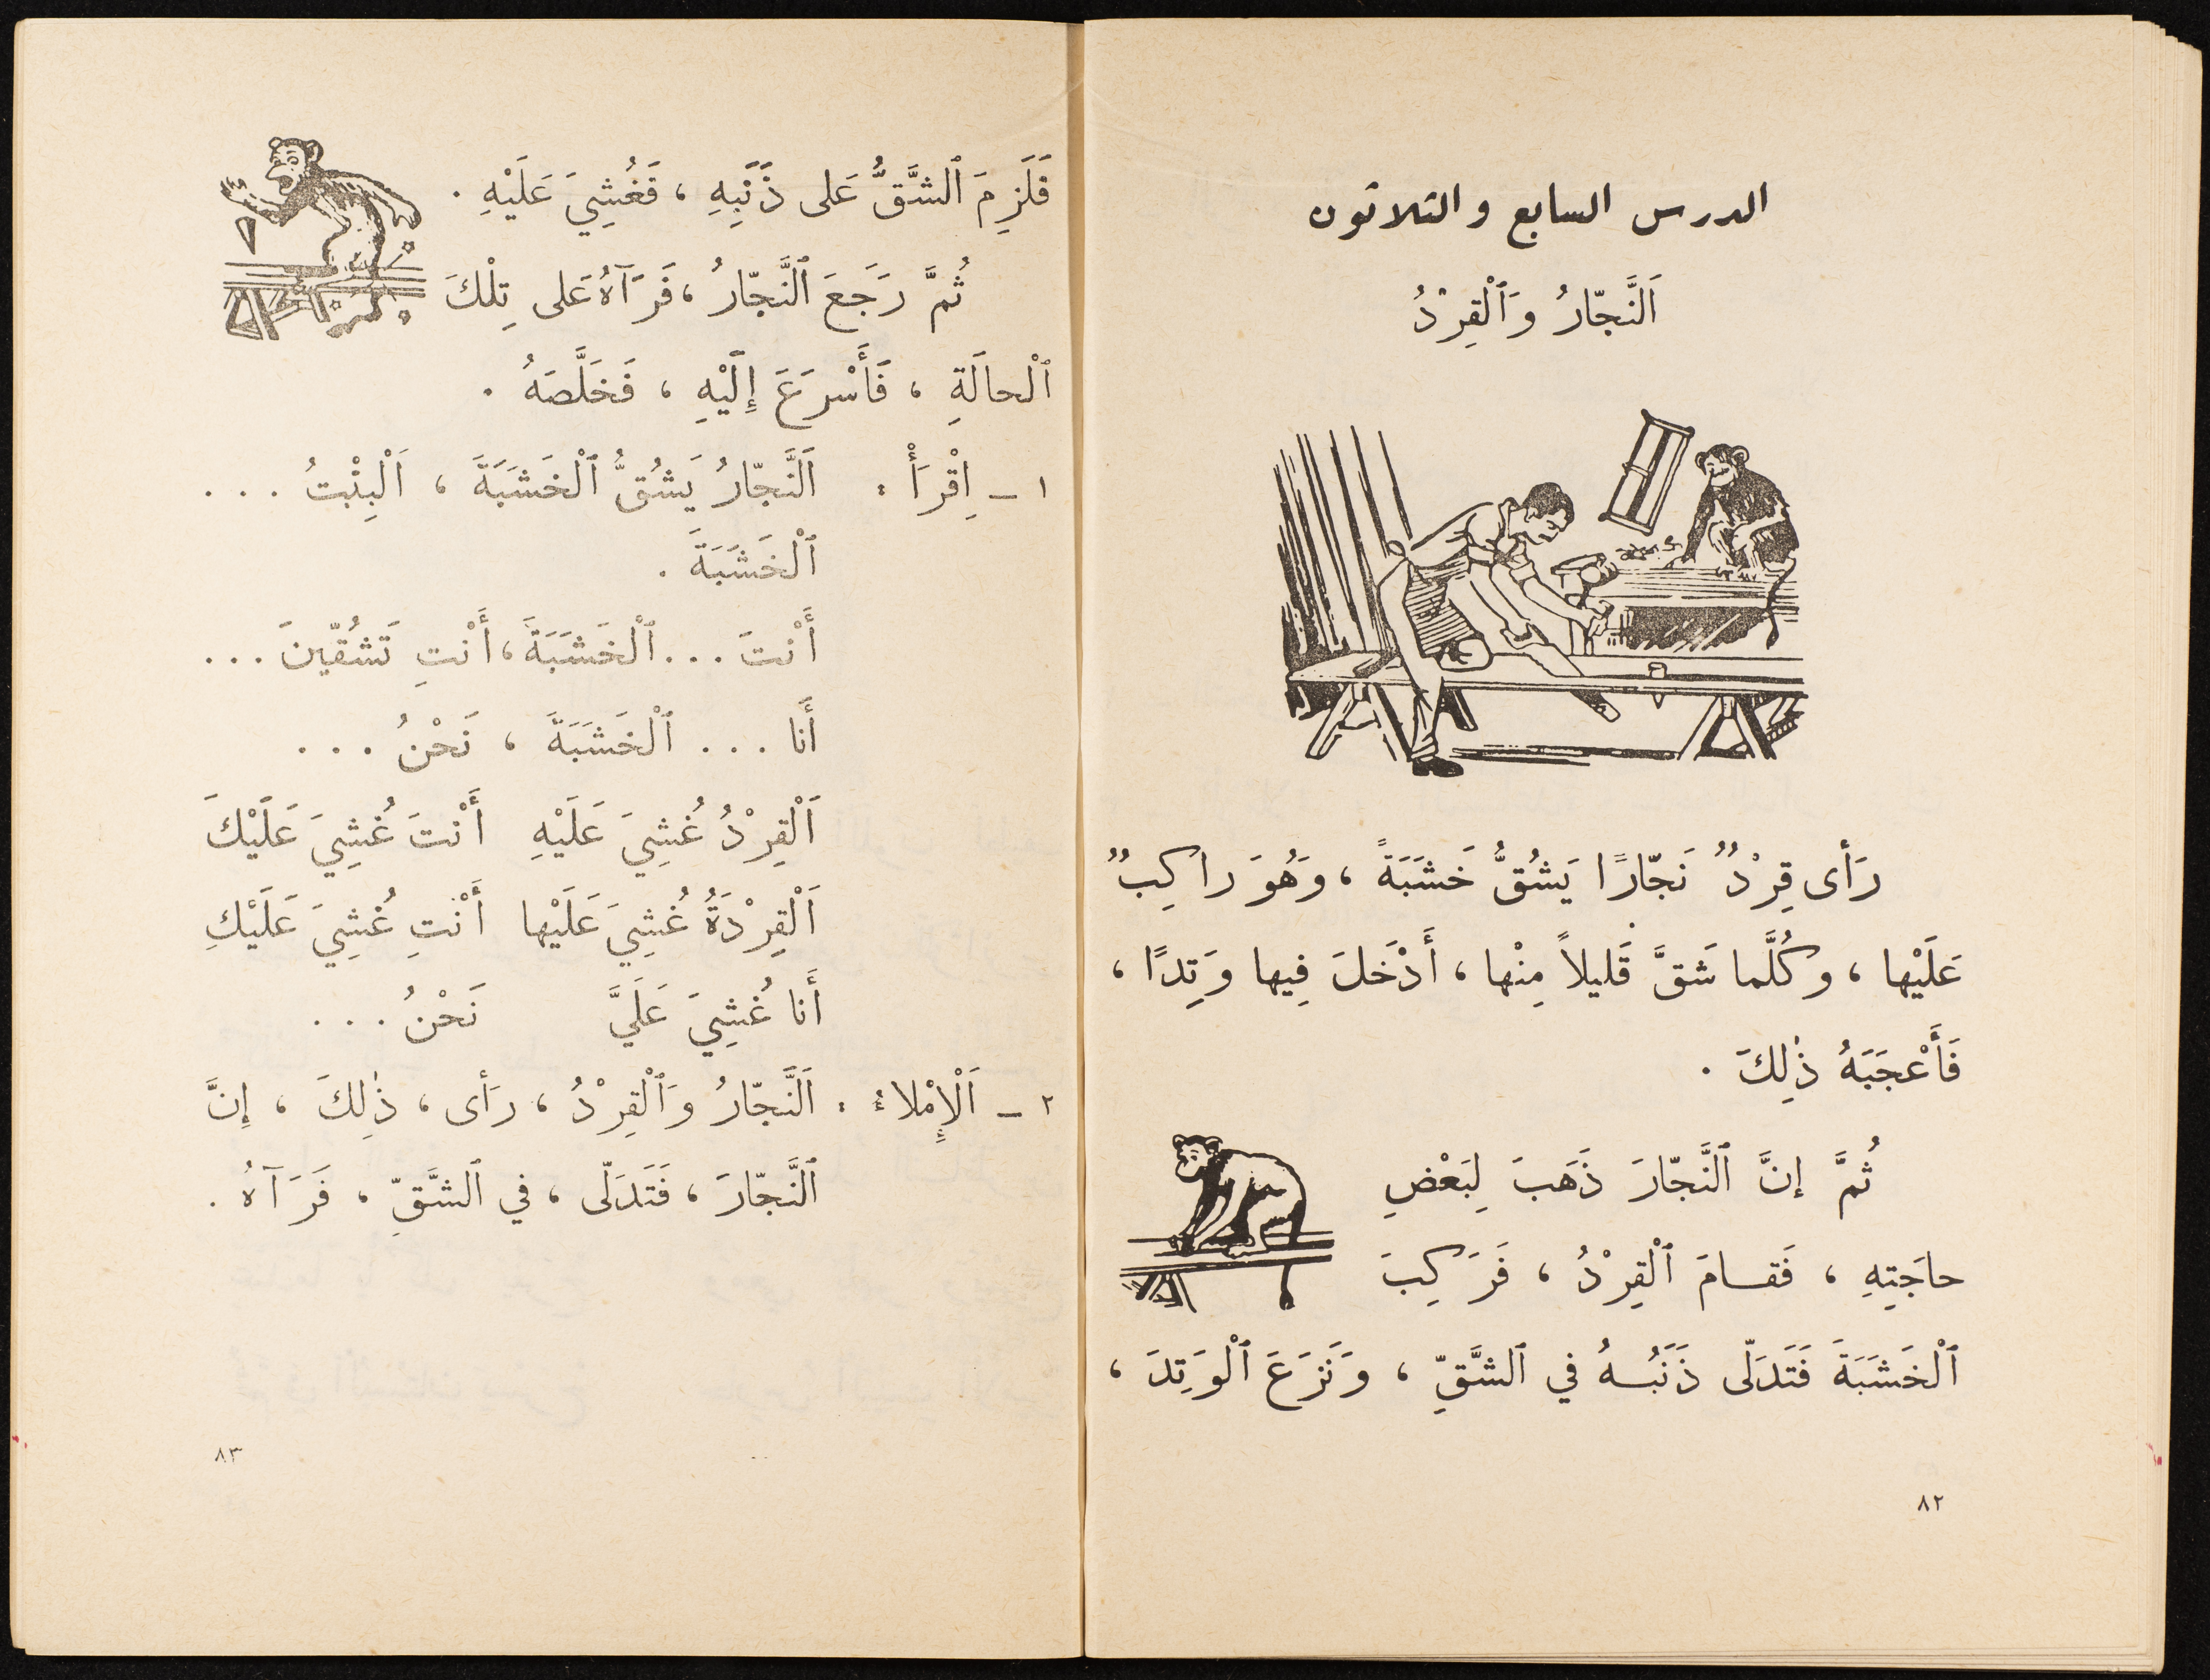 الدرس السابع والثلاثون
اَلنَّجّارُ وَٱلْقِرْدُ
رَأى قِرْدٌ نَجّارًا يَشُقُّ خَشَبَةً ، وَهُوَ راكِبٌ
عَلَيْها ، وكُلَّما شَقَّ قَليلاً مِنْها ، أَدْخَلَ فِيها وَتِدًا ،
فَأَعْجَبَهُ ذٰلِكَ .
ثُمَّ إنَّ ٱلنَّجّارَ ذَهَبَ لِبَعْضِ
حاجَتِهِ ، فَقامَ ٱلْقِرْدُ ، فَرَكِبَ
ٱلْخَشَبَةَ فَتَدَلّى ذَنَبُهُ في ٱلشَّقِّ ، وَنَزَعَ ٱلْوَتِدَ ،
٨٢
فَلَزِمَ ٱلشَّقُّ عَلى ذَنَبِهِ ، فَغُشِيَ عَلَيْهِ .
ثُمَّ رَجَعَ ٱلنَّجّارُ ، فَرَآهُ عَلى تِلْكَ
ٱلْحالَةِ ، فَأَسْرَعَ إِلَيْهِ ، فَخَلَّصَهُ .
١ – اِقْرَأْ : اَلنَّجّارُ يَشُقُّ ٱلْخَشَبَةَ ، اَلْبِنْتُ . . .
ٱلْخَشَبَةَ .
أَنْتَ . . . ٱلْخَشَبَةَ ، أَنْتِ تَشُقّينَ . . .
أَنا . . . ٱلْخَشَبَةَ ، نَحْنُ . . .
اَلْقِرْدُ غُشِيَ عَلَيْهِ أَنْتَ غُشِيَ عَلَيْكَ
اَلْقِرْدَةُ غُشِيَ عَلَيْها أَنْتِ غُشِيَ عَلَيْكِ
أَنا غُشِيَ عَلَيَّ نَحْنُ . . .
٢ – اَلْإِمْلاءُ : اَلنَّجّارُ وَٱلْقِرْدُ ، رَأى ، ذٰلِكَ ، إِنَّ
ٱلنَّجّارَ ، فَتَدَلّى ، في ٱلشَّقِّ ، فَرَآهُ .
٨٣